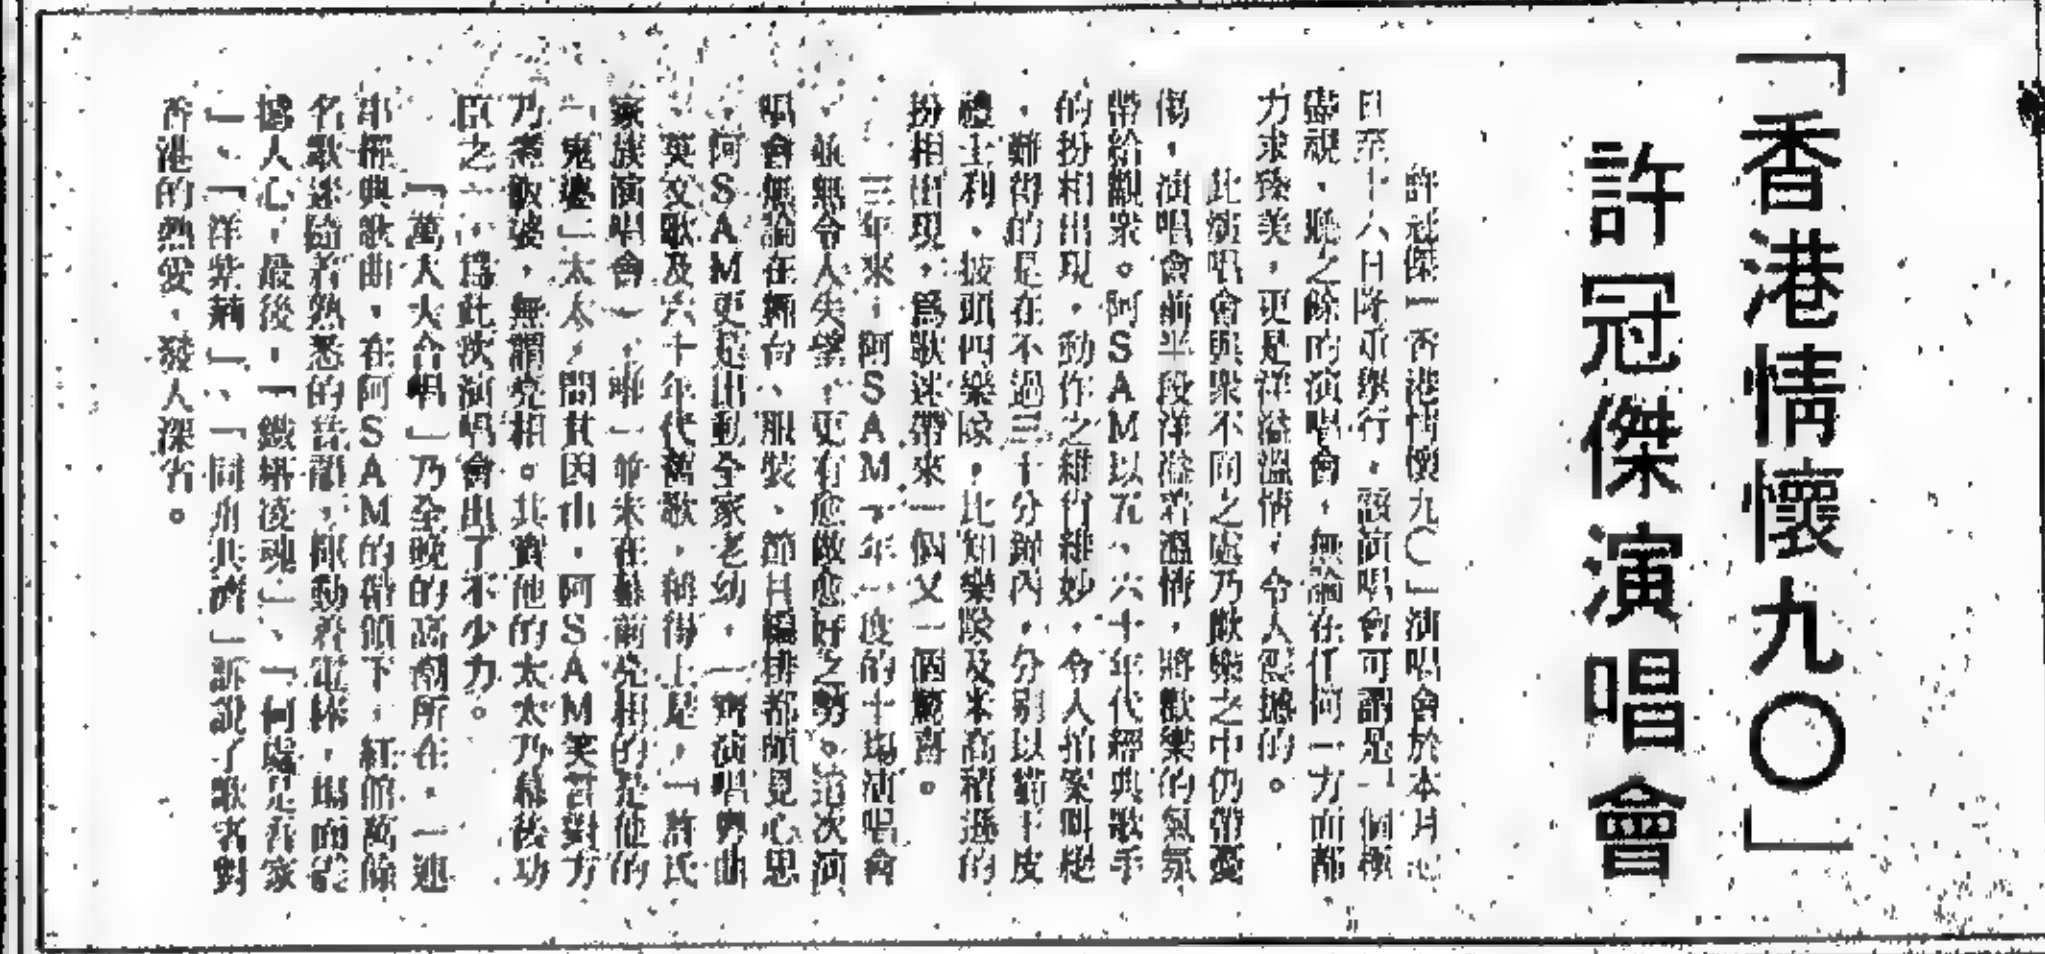 「香港情懷九〇」
許冠傑演唱會
許冠傑「香港情懷九〇」演唱會於本月
日至十六日隆重舉行,該演唱會可謂是一個極
盡視、聽之餘的演唱會,無論在任何一方面都
力求臻美,更是洋溢溫情,令人
此演唱會與眾不同之處乃歡樂之中仍帶憂
傷,演唱會前半段洋溢着溫情,將歡樂的氣氛
帶給觀眾。阿SAM以五、六十年代經典歌手
的扮相出現,動作之維肖維妙,令人拍案叫絕
,難得的是在不過三十分鐘內,分別以貓王皮
禮士利、披頭四樂隊、比知樂隊及羊高積遜的
扮相出現,爲歌迷帶來一個又一個驚喜。
三年來,阿SAM一年一度的十場演唱會
,並無令人失望,更有愈做愈好之勢。這次演
唱會無論在舞台、服裝、節目編排都頗見心思
,阿SAM更是出動全家老幼,一齊演唱粵曲
、英文歌及六十年代舊歌,稱得上是「許氏
家族演唱會」,唯一並未在幕前亮相的是他的
「鬼婆」太太,問其因由,阿SAM笑着對方
乃煮飯婆,無謂亮相。其實他的太太乃幕後功
臣之一,爲此次演唱會出了不少力。
「萬人大合唱」乃全晚的高潮所在,一連
串經典歌曲,在阿SAM的帶領下,紅館萬餘
名歌迷隨着熟悉的音韻,揮動着電棒,場面震
撼人心,最後,「鐵塔凌雲」、「何處是吾家
」、「洋紫荊」、「同舟共濟」訴說了歌者對
香港的熱愛,發人深省。